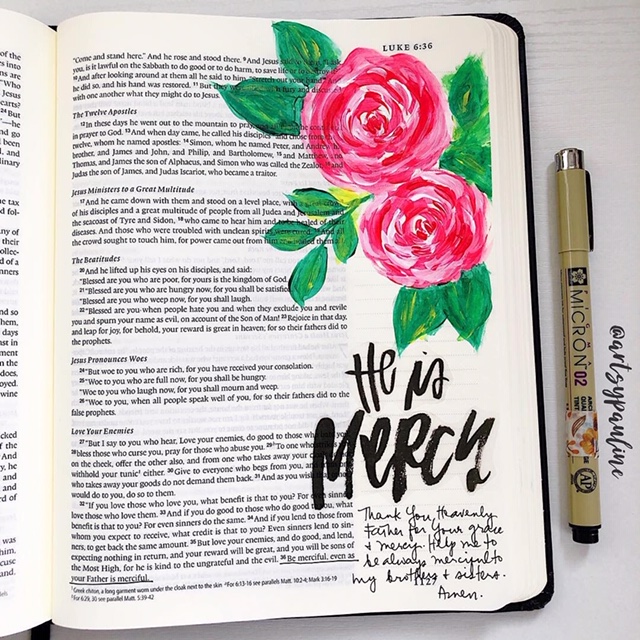 LUKE 6:36
"Come and stand here." And he rose and stood there. 9And Jesus said to
you, is it lawful on the Sabbath to do good or to do harm, to save life or to destroy
10And after looking around at them all he said to him, "Stretch out your hand." And
he did so, and his hand was restored. 11But they were filled with fury and
with one another what they might do to Jesus.
The Twelve Apostles
12In these days he went out to the mountain to pray, and all
in prayer to God. 13And when day came, he called his disciples and chose from
twelve, whom he named apostles: 14Simon, whom he named Peter, and Andrew
brother, and James and John, and Philip, and Bartholomew, 15and Matthew, and
Thomas, and James the son of Alphaeus, and Simon who was called the Zealot, 16and
Judas the son of James, and Judas Iscariot, who became a traitor.
Jesus Ministers to a Great Multitude
17And he came down with them and stood on a level place, with a great crowd
of his disciples and a great multitude of people from all Judea and Jerusalem and
the seacoast of Tyre and Sidon, 18who came to hear him and to be healed of their
diseases. And those who were troubled with unclean spirits were cured. 19And all
the crowd sought to touch him, for power came out from him and healed them all.
The Beatitudes
20And he lifted up his eyes on his disciples, and said:
"Blessed are you who are poor, for yours is the kingdom of God.
21"Blessed are you who are hungry now, for you shall be satisfied.
"Blessed are you who weep now, for you shall laugh.
22"Blessed are you when people hate you and when they exclude you and revile
you and spurn your name as evil, on account of the Son of Man! 23Rejoice in that day,
and leap for joy, for behold, your reward is great in heaven; for so their fathers did to
the prophets.
Jesus Pronounces Woes
24"But woe to you who are rich, for you have received your consolation.
25"Woe to you who are full now, for you shall be hungry.
"Woe to you who laugh now, for you shall mourn and weep.
26"Woe to you, when all people speak well of you, for so their fathers did to the
false prophets.
Love Your Enemies
27"But I say to you who hear, Love your enemies, do good to those who hate you,
28bless those who curse you, pray for those who abuse you. 29To one who
on the cheek, offer the other also, and from one who takes away your cloak
withhold your tunic either. 30Give to everyone who begs from you, and from one
who takes away your goods do not demand them back. 31And as you wish that
would do to you, do so to them.
32"If you love those who love you, what benefit is that to you? For even sinners
love those who love them. 33And if you do good to those who do good to you, what
benefit is that to you? For even sinners do the same. 34And if you lend to those from
whom you expect to receive, what credit is that to you? Even sinners lend to sin-
ners, to get back the same amount. 35But love your enemies, and do good, and lend,
expecting nothing in return, and your reward will be great, and you will be sons of
the Most High, for he is kind to the ungrateful and the evil. 36Be merciful, even as
your Father is merciful.
1 Greek chiton, a long garment worn under the cloak next to the skin 2For 6:13-16 see parallels Matt. 10:2-4; Mark 3:16-19
3For 6:29, 30 see parallel Matt. 5:39-42
He is
Mercy
Thank You, Heavenly
Father for Your grace
& mercy. Help me to
be always merciful to
my brothers & sisters.
Amen.
MICRON 02
@artsypauline